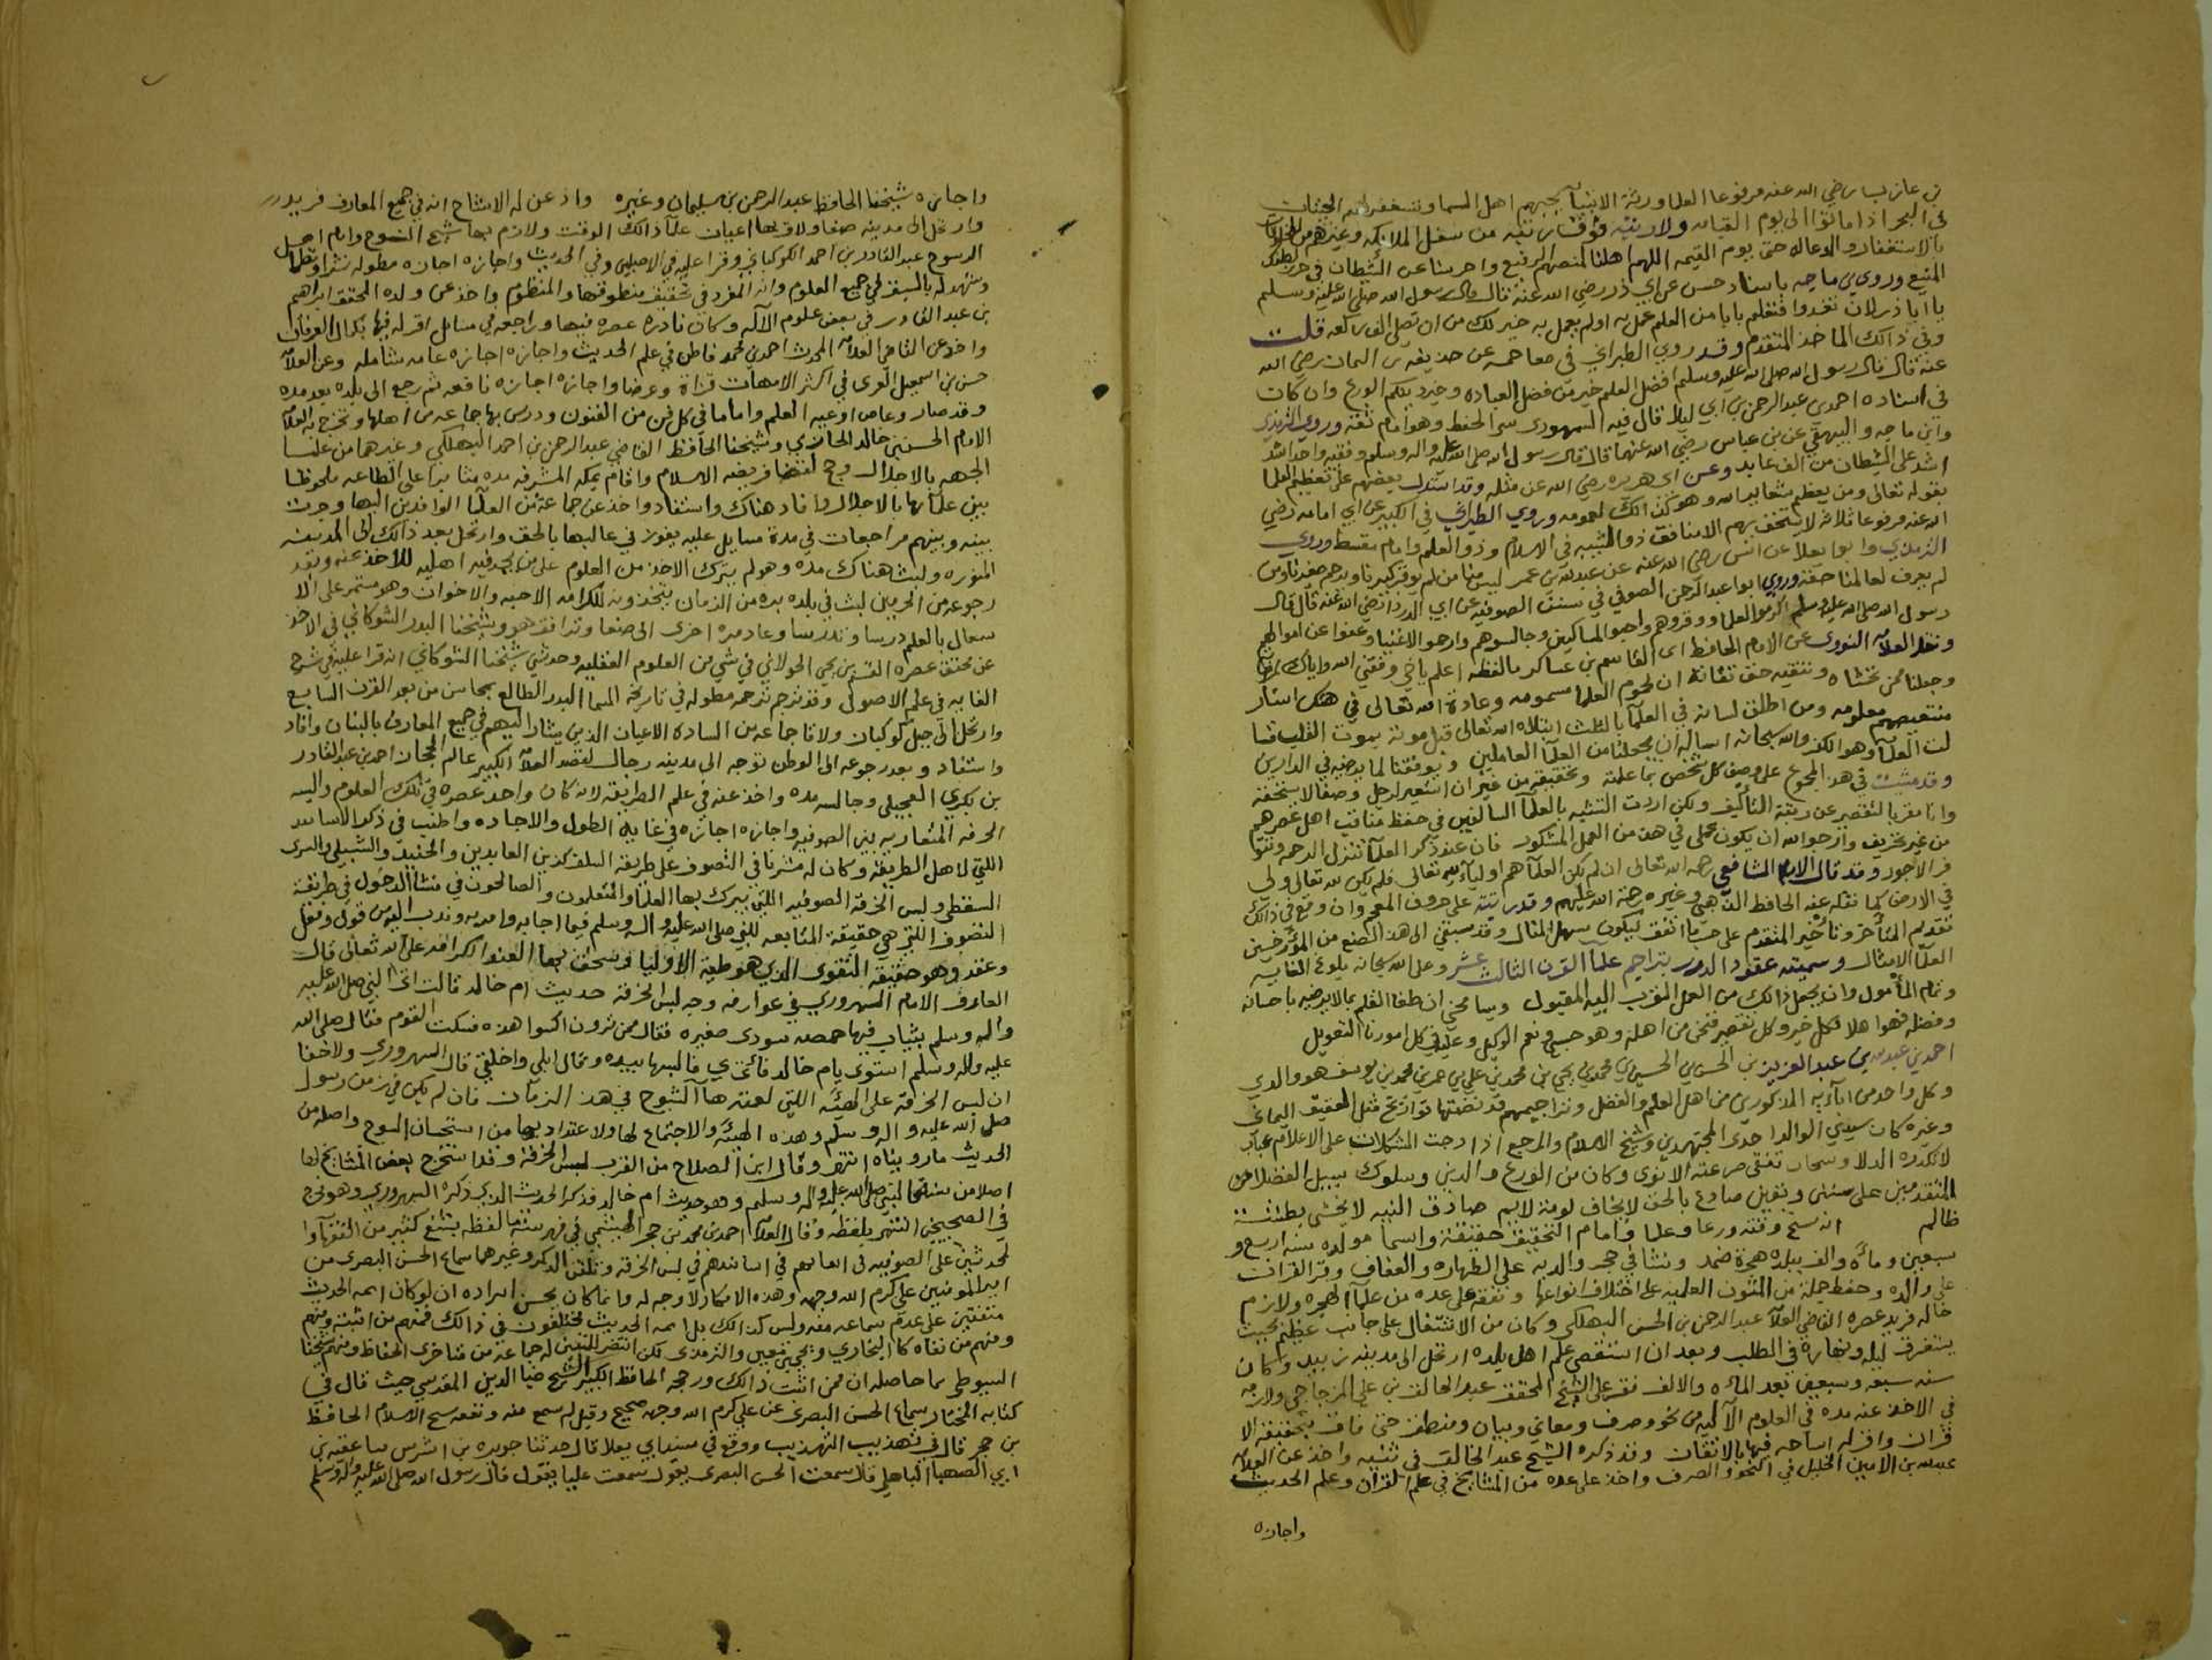 بن عازب رضي الله عنه مرفوعا العلما ورثة الانبيا يحبهم اهل السما وتستغفر لهم الحيتان
في البحر اذا ماتوا الى يوم القيامه
بالاستغفار والدعا له حتى يوم القيمه اللهم اهلنا لمنصبهم الرفيع واحرسنا عن الشيطان في حرزك
المنيع وروى بن ماجه باسناد حسن عن ابي ذر رضي الله عنه قال قال رسول الله صلى الله عليه وسلم
يا ابا ذر لان تغدوا فتعلم بابا من العلم عمل به او لم يعمل به خير لك من ان تصلي الف ركعه قلت
وفي ذالك الماخذ المتقدم وقد روى الطبراني في معاجمه عن حذيفه بن اليمان رضي الله
عنه قال قال رسول الله صلى الله عليه وسلم افضل العلم خير من فضل العباده وخير دينكم الورع وان كان
في اسناده احمد بن عبد الرحمن بن ابي ليلا قال فيه السمهودي سي الحفظ وهو امام ثقة وروى الترمذي
وابن ماجه والبيهقي عن بن عباس رضي الله عنهما قال قال رسول الله صلى الله عليه واله وسلم وفقيه واحد اشد
اشد على الشيطان من الف عابد وعن ابي هريره رضي الله عن مثله وقد استدل بعضهم على تعظيم العلما
بقوله تعالى ومن يعظم شعاير الله وهو كذالك لعمومه وروى الطبراني في الكبير عن ابي امامه رضي
الله عنه مرفوعا ثلاثة لا يستخف بهم الا منافق ذو الشيبه في الاسلام وذو العلم وامام مقسط وروى
الترمذي وابو يعلا عن انس رضي الله عنه عن عبد الله بن عمر ليس منا من لم يوقر كبيرنا ويرحم صغيرنا ومن
لم يعرف لعالمنا حقه وروى ابوا عبد الرحمن الصوفي في سنن الصوفيه عن ابي الدردا رضي الله عنه قال قال
رسول الله صلى الله عليه وسلم اكرموا العلما ووقروهم واحبوا المساكين وجالسوهم وارحموا الاغنيا وعفوا عن اموالهم
ونقل العلامه النووي عن الامام الحافظ ابي القاسم بن عساكر ما لفظه اعلم ياخي وفقني الله واياك لمرضاته
وجعلنا ممن يخشاه ويتقيه حق تقاته ان لحوم العلما مسمومه وعادة الله تعالى في هتك استار
منتقصيهم معلومه ومن اطلق لسانه في العلما بالثلب ابتلاه الله تعالى قبل موته بموت القلب
والله سبحانه اساله ان يجعلنا من العلما العاملين ويوفقنا لما يرضيه في الدارين
وقد مشيت في هذا المجموع على وصف كل شخص بما علمته وتحققته من غير ان استعير لرجل وصفا لا يستحقه
وانا مقر بالتقصير عن رتبة التاليف ولكن اردت التشبه بالعلما السالفين في حفظ مناقب اهل عصرهم
من غير تحريف وارجوا الله ان يكون عملي في هذا من العمل المشكور فان عند ذكر العلما تتنزل الرحمه
وقد قال الامام الشافعي رحمه الله تعالى ان لم يكن العلما هم اوليا لله تعالى فلم يكن لله تعالى ولي
في الارض كما نقله عنه الحافظ الذهبي وغيره رحمة الله عليهم وقد رتبته على حروف المعجم وان وقع في ذالك
تقديم المتاخر وتاخير المتقدم على حسب ما اتفق ليكون سهل المنال وقد سبقني الى هذا الصنع من المؤرخين
العلما الامثال وسميته عقود الدرر بتراجم علما القرن الثالث عشر وعلى الله سبحانه بلوغ الغايه
وتمام المأمول وان يجعل ذالك من العمل المقرب اليه المقبول ويسامحني ان طغا القلم بما لا يرضيه باحسانه
وفضله فهوا اهلا لكل خير وكل تقصير فمني من اهله وهو حسبي ونعم الوكيل وعليه في كل امورنا التعويل
احمد بن عبد الله بن عبد العزيز بن الحسن بن الحسين بن محمد بن يحيى بن محمد بن علي بن عمر بن محمد بن يوسف هو والدي
وكل واحد من ابآيه المذكورين من اهل العلم والفضل وتراجمهم قد تضمنتها تواريخ مثل العقيق اليماني
وغيره كان سيدي الوالد احد المجتهدين وشيخ الاسلام والمرجع اذا دجت المشكلات على الاعلام
لا تكدره الدلا وكان من الورع والدين وسلوك سبيل الفضلا من
المتقدمين على سنن ويقين صادع بالحق لا يخاف لومة لايم صادق النيه لا يخشى بطشة
ظالم وامام التحقيق حقيقة واسما مولده سنه اربع و
سبعين ومائه والف ببلده هجرة ضمد ونشا في حجر والديه على الطهاره والعفاف وقرا القران
على والده وحفظ جملة من المتون العلميه على اختلاف انواعها وتفقه على عده من علما الهجره ولازم
خاله فريد عصره القاضي العلامه عبد الرحمن بن الحسن البهكلي وكان من الاشتغال على جانب عظيم بحيث
يستغرق ليله ونهاره في الطلب وبعد ان استقصى علم اهل بلده ارتحل الى مدينه زبيد وكان
سنه سبعه وتسعين بعد المائه والالف فقرا على الشيخ المحقق عبد الخالق بن علي المزجاجي ولازمه
في الاخذ عنه مده في العلوم الآليه من نحو وصرف ومعاني وبيان ومنطق حتى فاق بتحقيقه الا
قران واقر له اشياخه فيها بالاتقان وقد ذكره الشيخ عبد الخالق في ثبته واخذ عن العلامه
عبد الله بن الامين الخليل في النحو والصرف واخذ على عده من المشايخ في علم القران وعلم الحديث
واجازه
واجازه شيخنا الحافظ عبد الرحمن بن سليمان وغيره واذعن له الاشياخ انه في جميع المعارف فريد
وارتحل الى مدينه صنعا ولاقى بها اعيان علما ذالك الوقت ولازم بها شيخ الشيوخ وامام اهل
الرسوخ عبد القادر بن احمد الكوكباني وقرا عليه في الاصلين وفي الحديث واجازه اجازه مطوله نثرا ونظما
وشهد له بالسبق في جميع العلوم وانه المفرد في تحقيق منطوقها والمفهوم واخذ عن ولده المحقق ابراهيم
بن عبد القادر في بعض علوم الآله وكان نادره عصره فيها وراجعه في مسايل اقر له فيها بكمال العرفان
واخذ عن القاضي العلامه المحدث احمد بن محمد قاطن في علم الحديث واجازه اجازه عامه شامله وعن العلامه
حسن بن اسمعيل المغربي في اكثر الامهات قراة وعرضا واجازه اجازه نافعه ثم رجع الى بلده بعد مده
وقد صار وعاء من اوعيه العلم واماما في كل فن من الفنون ودرس بها جماعه من اهلها وتخرج به العلامه
الامام الحسن بن خالد الحازمي وشيخنا الحافظ القاضي عبد الرحمن بن احمد البهكلي وغيرهما من علما
الجهه بالاجلال وحج لقضا فريضه الاسلام واقام بمكه المشرفه مده مثابرا على الطاعه ملحوظا
بين علمآئها بالاجلال وافاد هناك واستفاد واخذ عن جماعة من العلما الوافدين اليها وجرت
بينه وبينهم مراجعات في عدة مسايل عليه يفوز في غالبها بالحق وارتحل بعد ذالك الى المدينه
المنوره ولبث هناك مده وهو لم يترك الاخذ من العلوم على من يجد فيه اهليه للاخذ عنه وبعد
رجوعه من الحرمين لبث في بلده بره من الزمان والاخوان وهو مستمر على الا
شتغال بالعلم درسا وتدريسا وعاد مره اخرى الى صنعا وترافق هو وشيخنا البدر الشوكاني في الاخذ
عن محقق عصره القسم بن يحيى الخولاني في شي من العلوم العقليه وحدثني شيخنا الشوكاني انه قرا عليه في شرح
الغايه في علم الاصول وقد ترجم ترجمه مطوله في تاريخه المسما البدر الطالع بمحاسن من بعد القرن السابع
وارتحل الى جبل كوكبان ولاقا جماعه من الساده الاعيان الذين يشار اليهم في جميع المعارف بالبنان وافاد
واستفاد وبعد رجوعه الى الوطن توجه الى مدينه رجال لقصد العلامه الكبير عالم الحجاز احمد بن عبد القادر
بن بكري العجيلي وجالسه مده واخذ عنه في علم الطريقه لانه كان واحد عصره في تلك العلوم والبسه
الخرقه المتعارفه بين الصوفيه واجازه اجازه في غايه الطول والاجاده واطنب في ذكر الاسانيد
اللتي لاهل الطريقه وكان له مشربا في التصوف على طريقه السلف كزين العابدين والجنيد والشبلي والسري
السقطي ولبس الخرقة الصوفيه اللتي يتبرك بها العلما والمتعلمون والصالحون في منشا الدخول في طريقة
التصوف اللتي هي حقيقة المتابعه للنبي صلى الله عليه واله وسلم فيما اجابه وامر به وندب اليه من قول وفعل
وعقد وهو حقيقة التقوى الذي هو وظيفة الاوليا ويستحق بها العبد الكرامه على الله تعالى قال
العارف الامام السهروردي في عوارفه وجه لبس الخرقه حديث ام خالد قالت اتى النبي صلى الله عليه
واله وسلم بثياب فيها خميصه سودى صغيره فقال من ترون اكسوا هذه فسكت القوم فقال صلى الله
عليه واله وسلم ايتوني بام خالد فأتي بي فالبسها بيده وقال ابلي واخلقي قال السهروردي ولا خفا
ان لبس الخرقه على الهيئه اللتي يعتمدها الشيوخ في هذا الزمان فان لم يكن في زمن رسول
صلى الله عليه واله وسلم وهذه الهيئه والاجتماع لها والاعتداد بها من استحسان الشيوخ واصله من
الحديث ما رويناه انتهى وقال ابن الصلاح من القرب لبس الخرقة وقد استخرج بعض المشايخ لها
اصلا من سنة النبي صلى الله عليه واله وسلم وهو حديث ام خالد فذكر الحديث الذي ذكره السهروردي وهو مخرج
في الصحيحين انتهى بلفظه وقال العلامه احمد بن محمد بن حجر الهيتمي في فهرسته ما لفظه يشنع كثير من الفقها وا
لمحدثين على الصوفيه في اسانيدهم في لبس الخرقه وتلقين الذكر وغيرهما سماع الحسن البصري من
امير المومنين علي كرم الله وجهه وهذه الانكار لا وجه له وانما كان يحسن ايراده ان لو كان ايمه الحديث
متفقين على عدم سماعه منه وليس كذالك بل ايمه الحديث مختلفون في ذالك فمنهم من اثبته ومنهم
ومنهم من نفاه كا البخاري ويحيى بن معين والترمذي لكن انتصر للمثبتين له جماعه من متاخري الحفاظ ومنهم شيخنا
السيوطي بما حاصله ان ممن اثبت ذالك ورجحه الحافظ الكبير الشيخ ضيا الدين المقدسي حيث قال في
كتابه المختار سماع الحسن البصري عن علي كرم الله وجهه صحيح وقيل لم يسمع منه وتبعه شيخ الاسلام الحافظ
بن حجر قال في تهذيب التهذيب ووقع في مسند ابي يعلا قال حدثنا جويريه بن اشرس ثنا عقبه بن
ابي الصهبا الباهلي قلا سمعت الحسن البصري يقول سمعت عليا يقول قال رسول الله صلى الله عليه واله وسلم